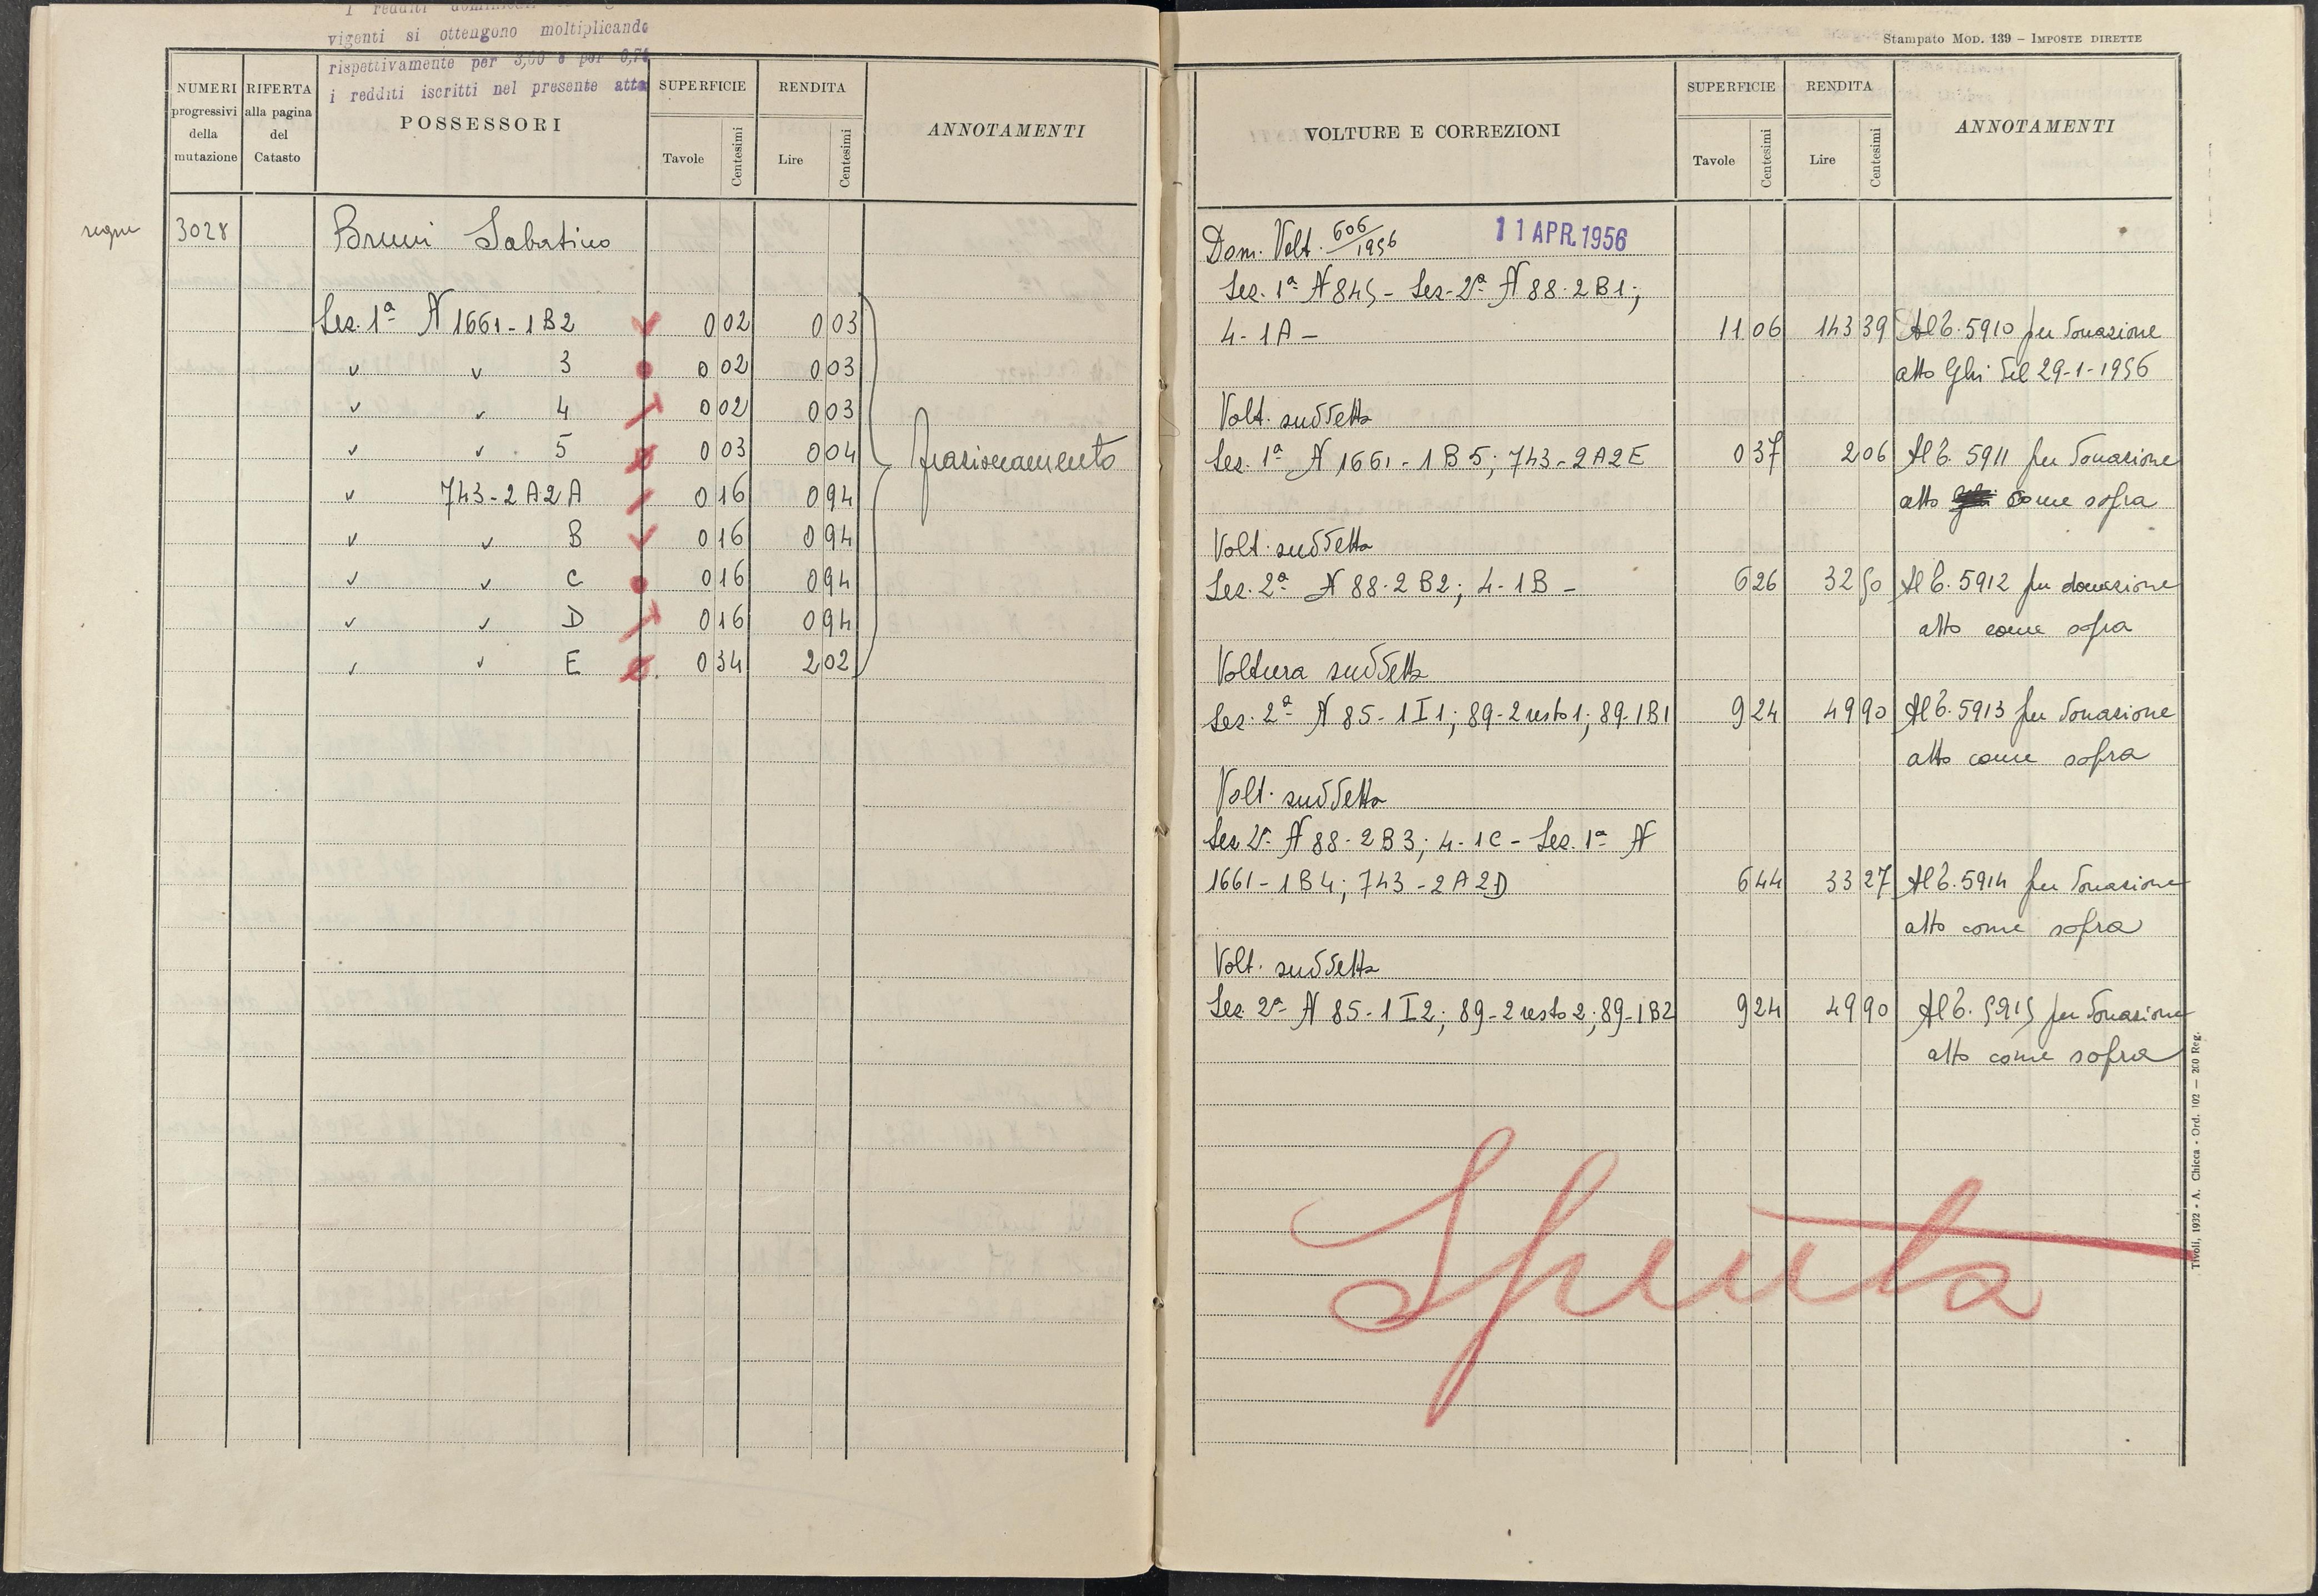 I redditi dominicali
vigenti si ottengono moltiplicando
rispettivamente per 3,00 e per 0,71
i redditi iscritti nel presente atto
NUMERI progressivi della mutazione
RIFERTA alla pagina del Catasto
POSSESSORI
SUPERFICIE
Tavole Centesimi
RENDITA
Lire Centesimi
ANNOTAMENTI
segue 3028 Bruni Sabatino
Sez. 1ª N 1661-1B2 0 02 0 03
" " 3 0 02 0 03
" " 4 0 02 0 03
" " 5 0 03 0 04
frazionamento
" 743-2A2A 0 16 0 94
" " B 0 16 0 94
" " C 0 16 0 94
" " D 0 16 0 94
" " E 0 34 2 02
Stampato MOD. 139 – IMPOSTE DIRETTE
VOLTURE E CORREZIONI
SUPERFICIE
Tavole Centesimi
RENDITA
Lire Centesimi
ANNOTAMENTI
Dom. Volt. 606/1956 11 APR. 1956
Sez. 1ª N 845 - Sez. 2ª N 88-2B1;
4-1A - 11 06 143 39 Al C. 5910 per donazione
atto Ghi del 29-1-1956
Volt. suddetta
Sez. 1ª N 1661-1B5; 743-2A2E 0 37 2 06 Al C. 5911 per donazione
atto come sopra
Volt. suddetta
Sez. 2ª N 88-2B2; 4-1B - 6 26 32 50 Al C. 5912 per donazione
atto come sopra
Voltura suddetta
Sez. 2ª N 85-1I1; 89-2 resto 1; 89-1B1 9 24 49 90 Al C. 5913 per donazione
atto come sopra
Volt. suddetta
Sez 2ª N 88-2B3; 4-1C - Sez. 1ª N
1661-1B4; 743-2A2D 6 44 33 27 Al C. 5914 per donazione
atto come sopra
Volt. suddetta
Sez. 2ª N 85-1I2; 89-2 resto 2; 89-1B2 9 24 49 90 Al C. 5915 per donazione
atto come sopra
Spenta
Tivoli, 1932 - A. Chicca - Ord. 102 — 200 Reg.